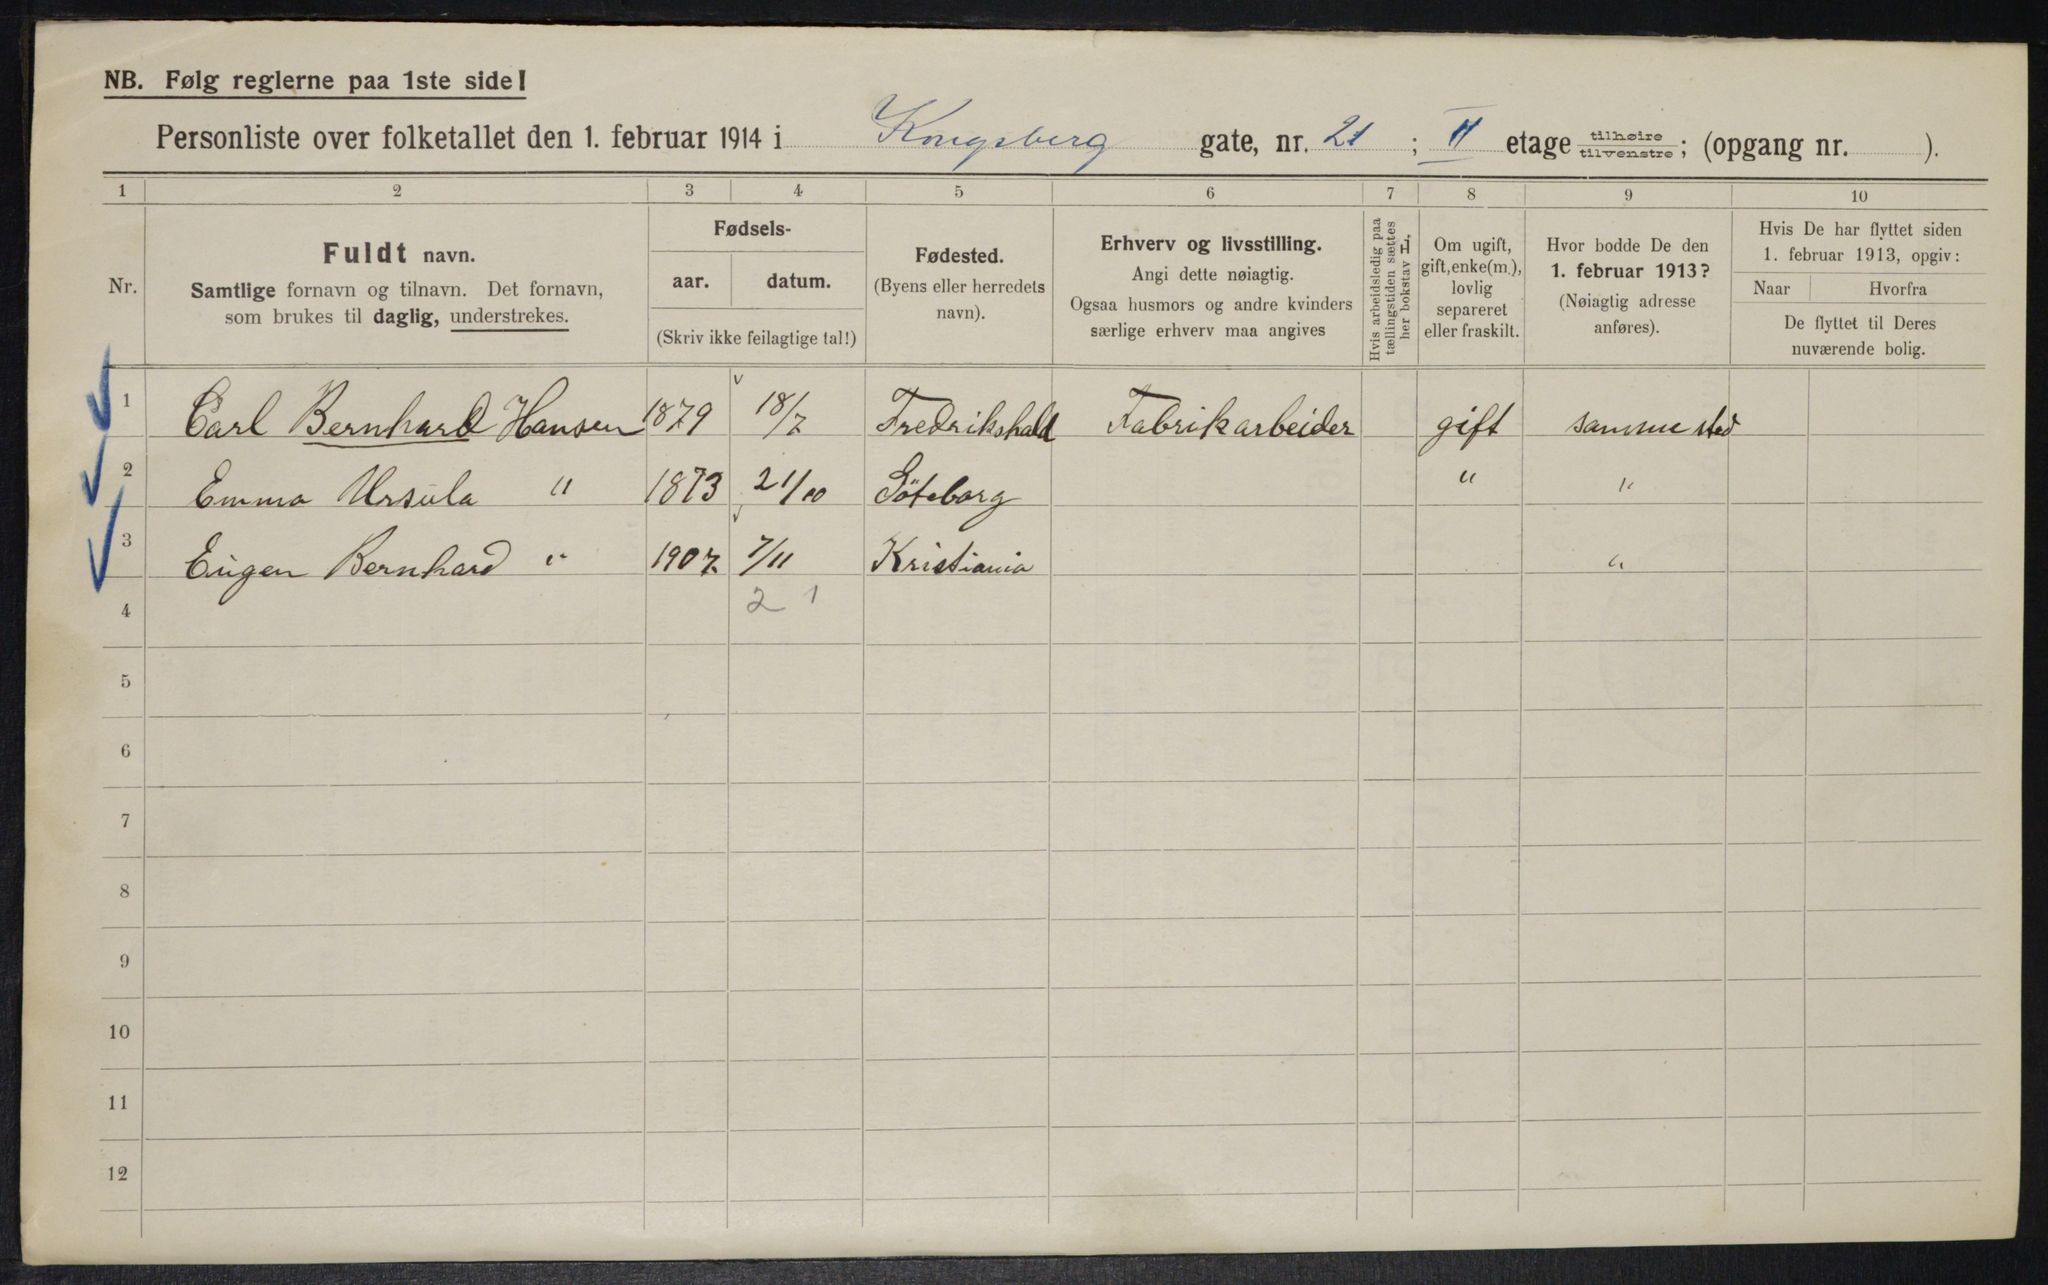 NB. Følg reglerne paa 1ste side!
Personliste over folketallet den 1. februar 1914 i Kongsberg gate, nr. 21 ; II etage tilhøire tilvenstre; (opgang nr. ).
1 2 3 4 5 6 7 8 9 10
Nr.
Fuldt navn.
Samtlige fornavn og tilnavn. Det fornavn,
som brukes til daglig, understrekes.
Fødsels-
aar. datum.
(Skriv ikke feilagtige tal!)
Fødested.
(Byens eller herredets
navn).
Erhverv og livsstilling.
Angi dette nøiagtig.
Ogsaa husmors og andre kvinders
særlige erhverv maa angives
Hvis arbeidsledig paa
tællingstiden sættes
her bokstav L.
Om ugift,
gift, enke(m.),
lovlig
separeret
eller fraskilt.
Hvor bodde De den
1. februar 1913?
(Nøiagtig adresse
anføres).
Hvis De har flyttet siden
1. februar 1913, opgiv:
Naar Hvorfra
De flyttet til Deres
nuværende bolig.
1 Carl Bernhard Hansen 1879 18/7 Fredrikshald Fabrikarbeider gift samme sted
2 Emma Ursula " 1873 21/10 Göteborg " "
3 Eugen Bernhard " 1907 7/11 Kristiania "
4 2 1
5
6
7
8
9
10
11
12